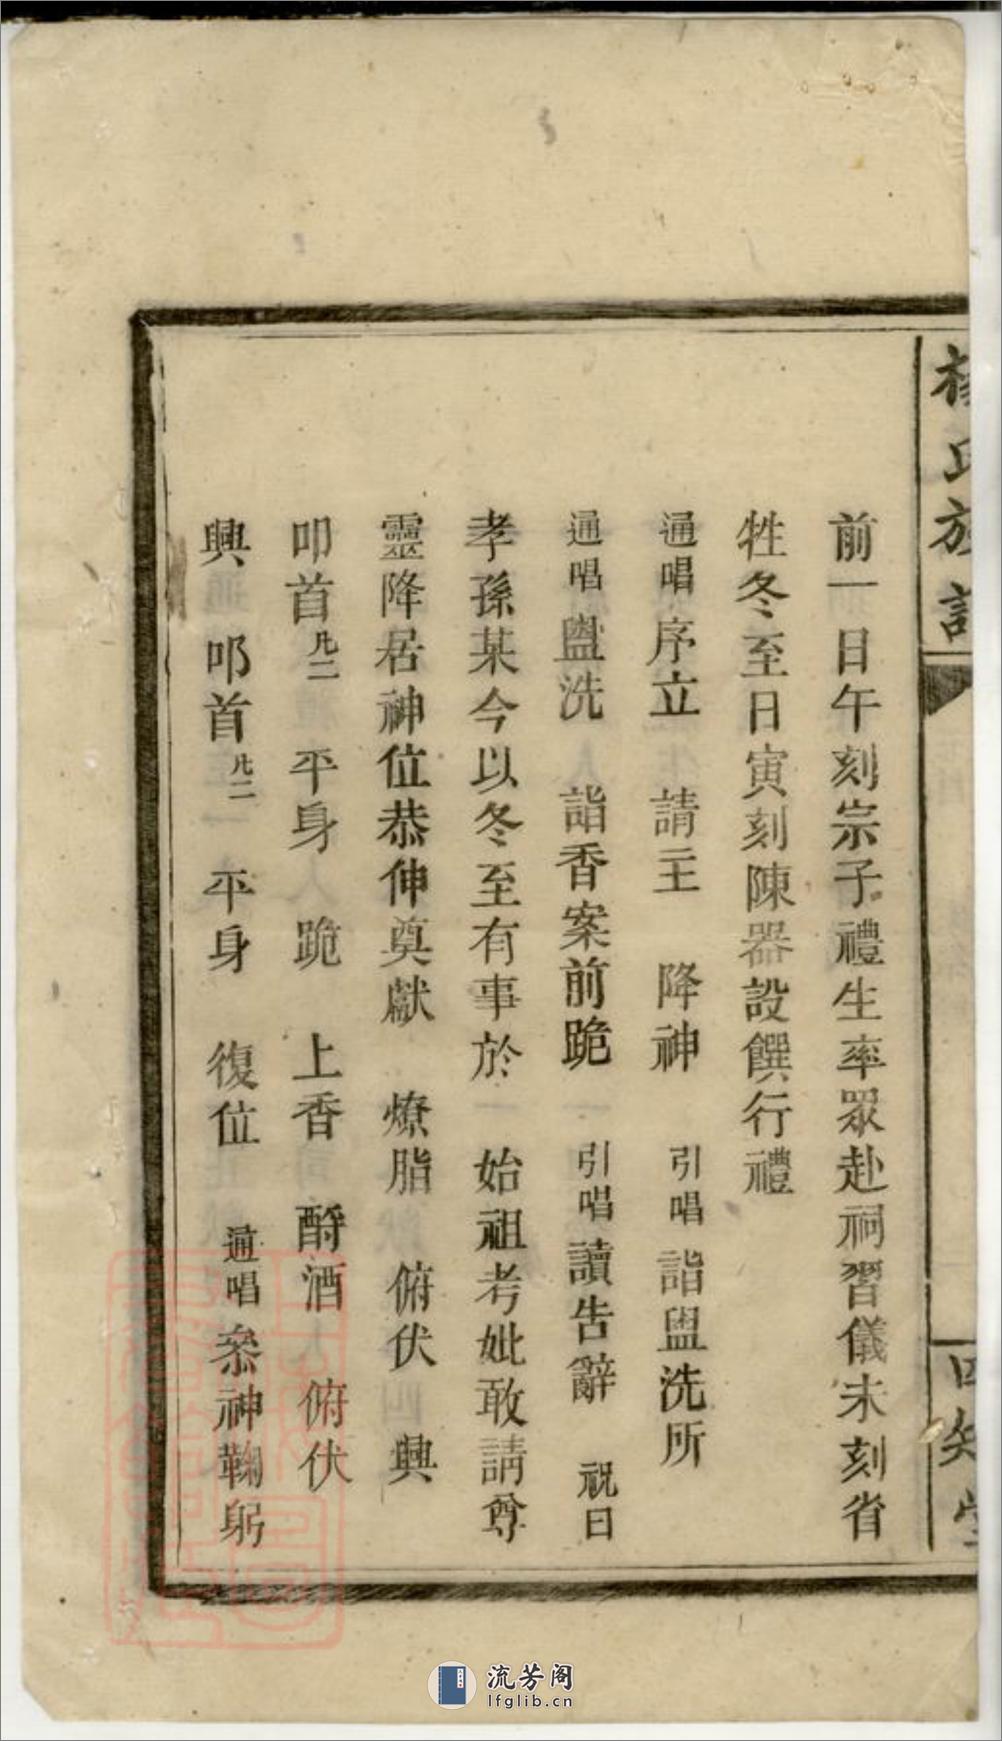 楊氏族譜
四知堂
前一日午刻宗子禮生率眾赴祠習儀未刻省
牲冬至日寅刻陳器設饌行禮
通唱序立 請主 降神 引唱詣盥洗所
通唱盥洗 人詣香案前跪 引唱讀告辭 祝曰
孝孫某今以冬至有事於 始祖考妣敢請尊
靈降居神位恭伸奠獻 燎脂 俯伏 興
叩首凡二 平身 跪 上香 酹酒 俯伏
興 叩首凡二 平身 復位 通唱叅神鞠躬
流芳阁
lfglib.cn